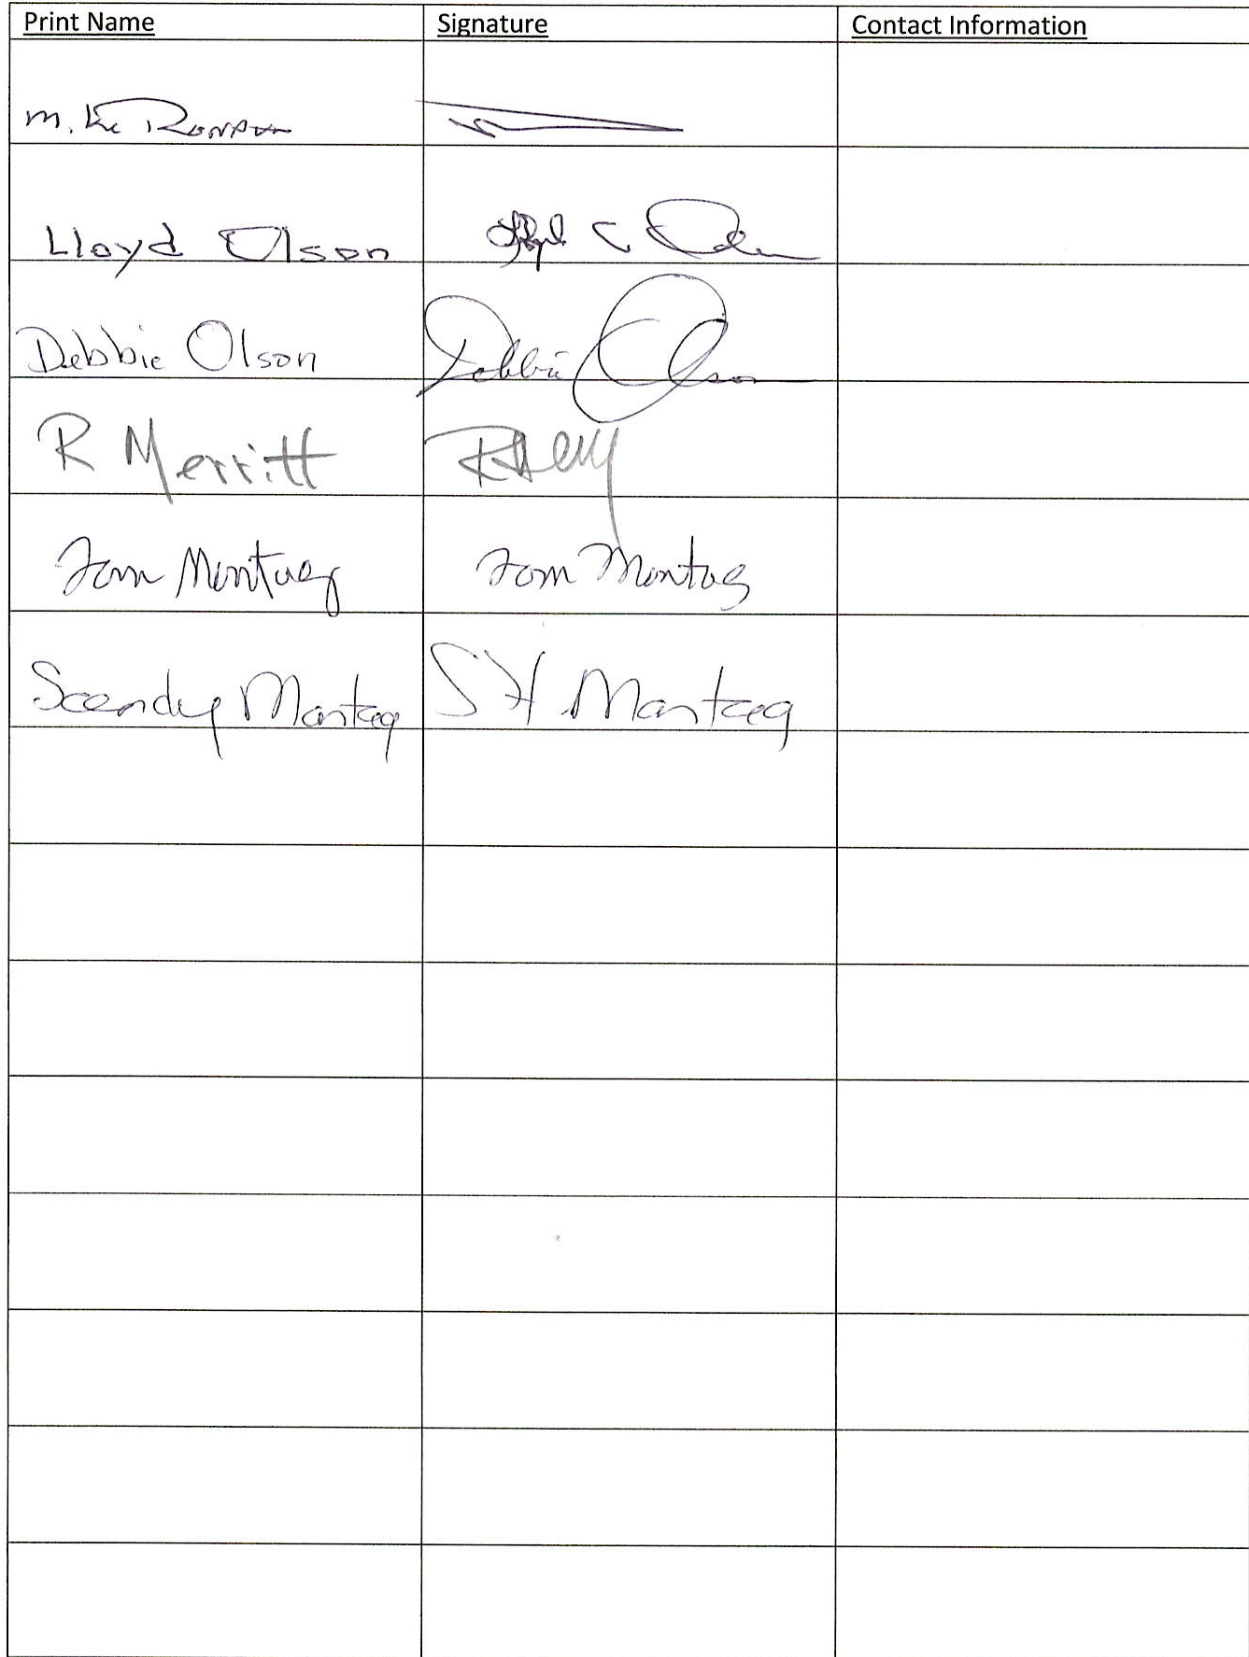 Print Name Signature Contact Information
Mike
Lloyd Olson
Debbie Olson Debbie Olson
R Merritt
Tom Montag Tom Montag
Montag S H Montag